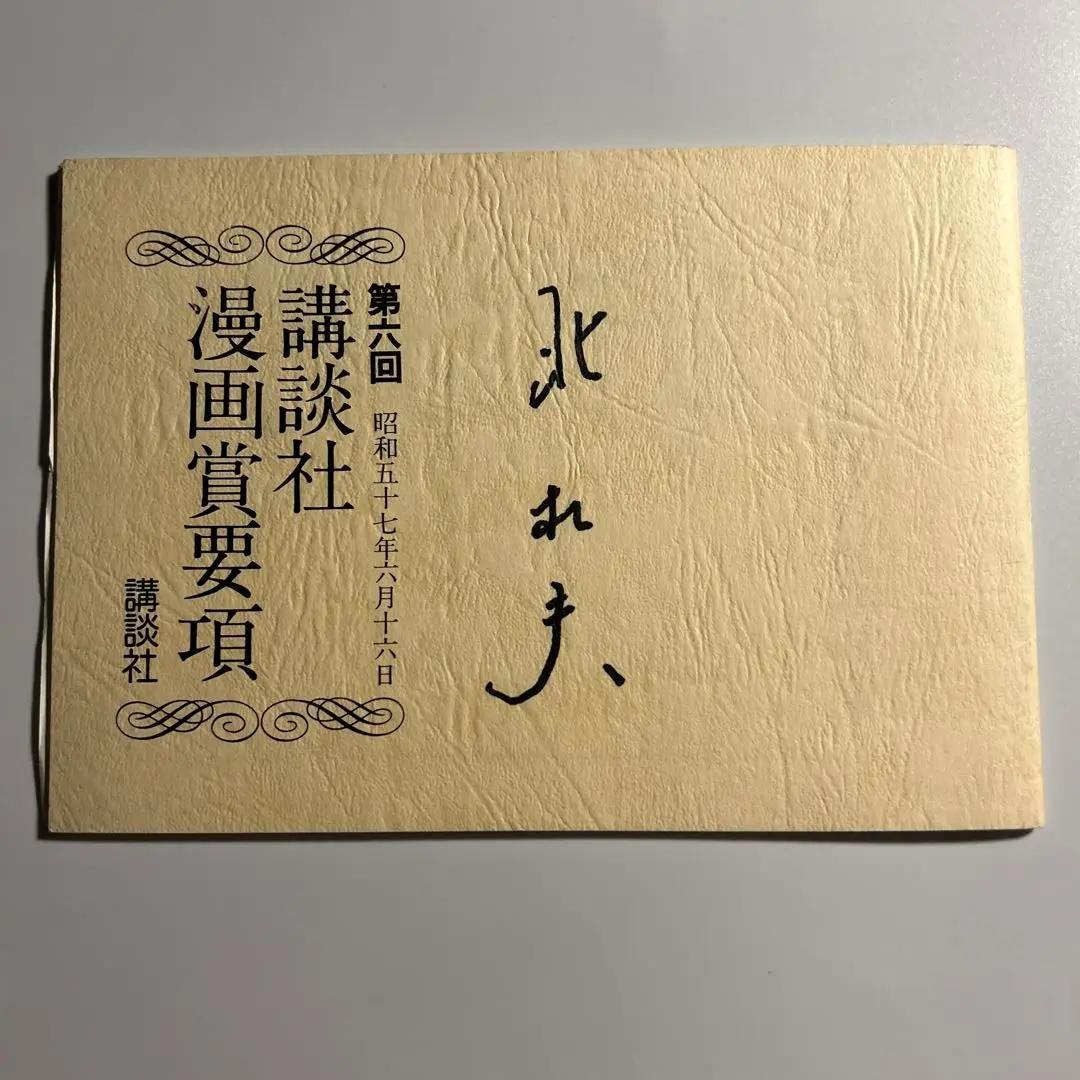 北杜夫
第六回 昭和五十七年六月十六日
講談社
漫画賞要項
講談社